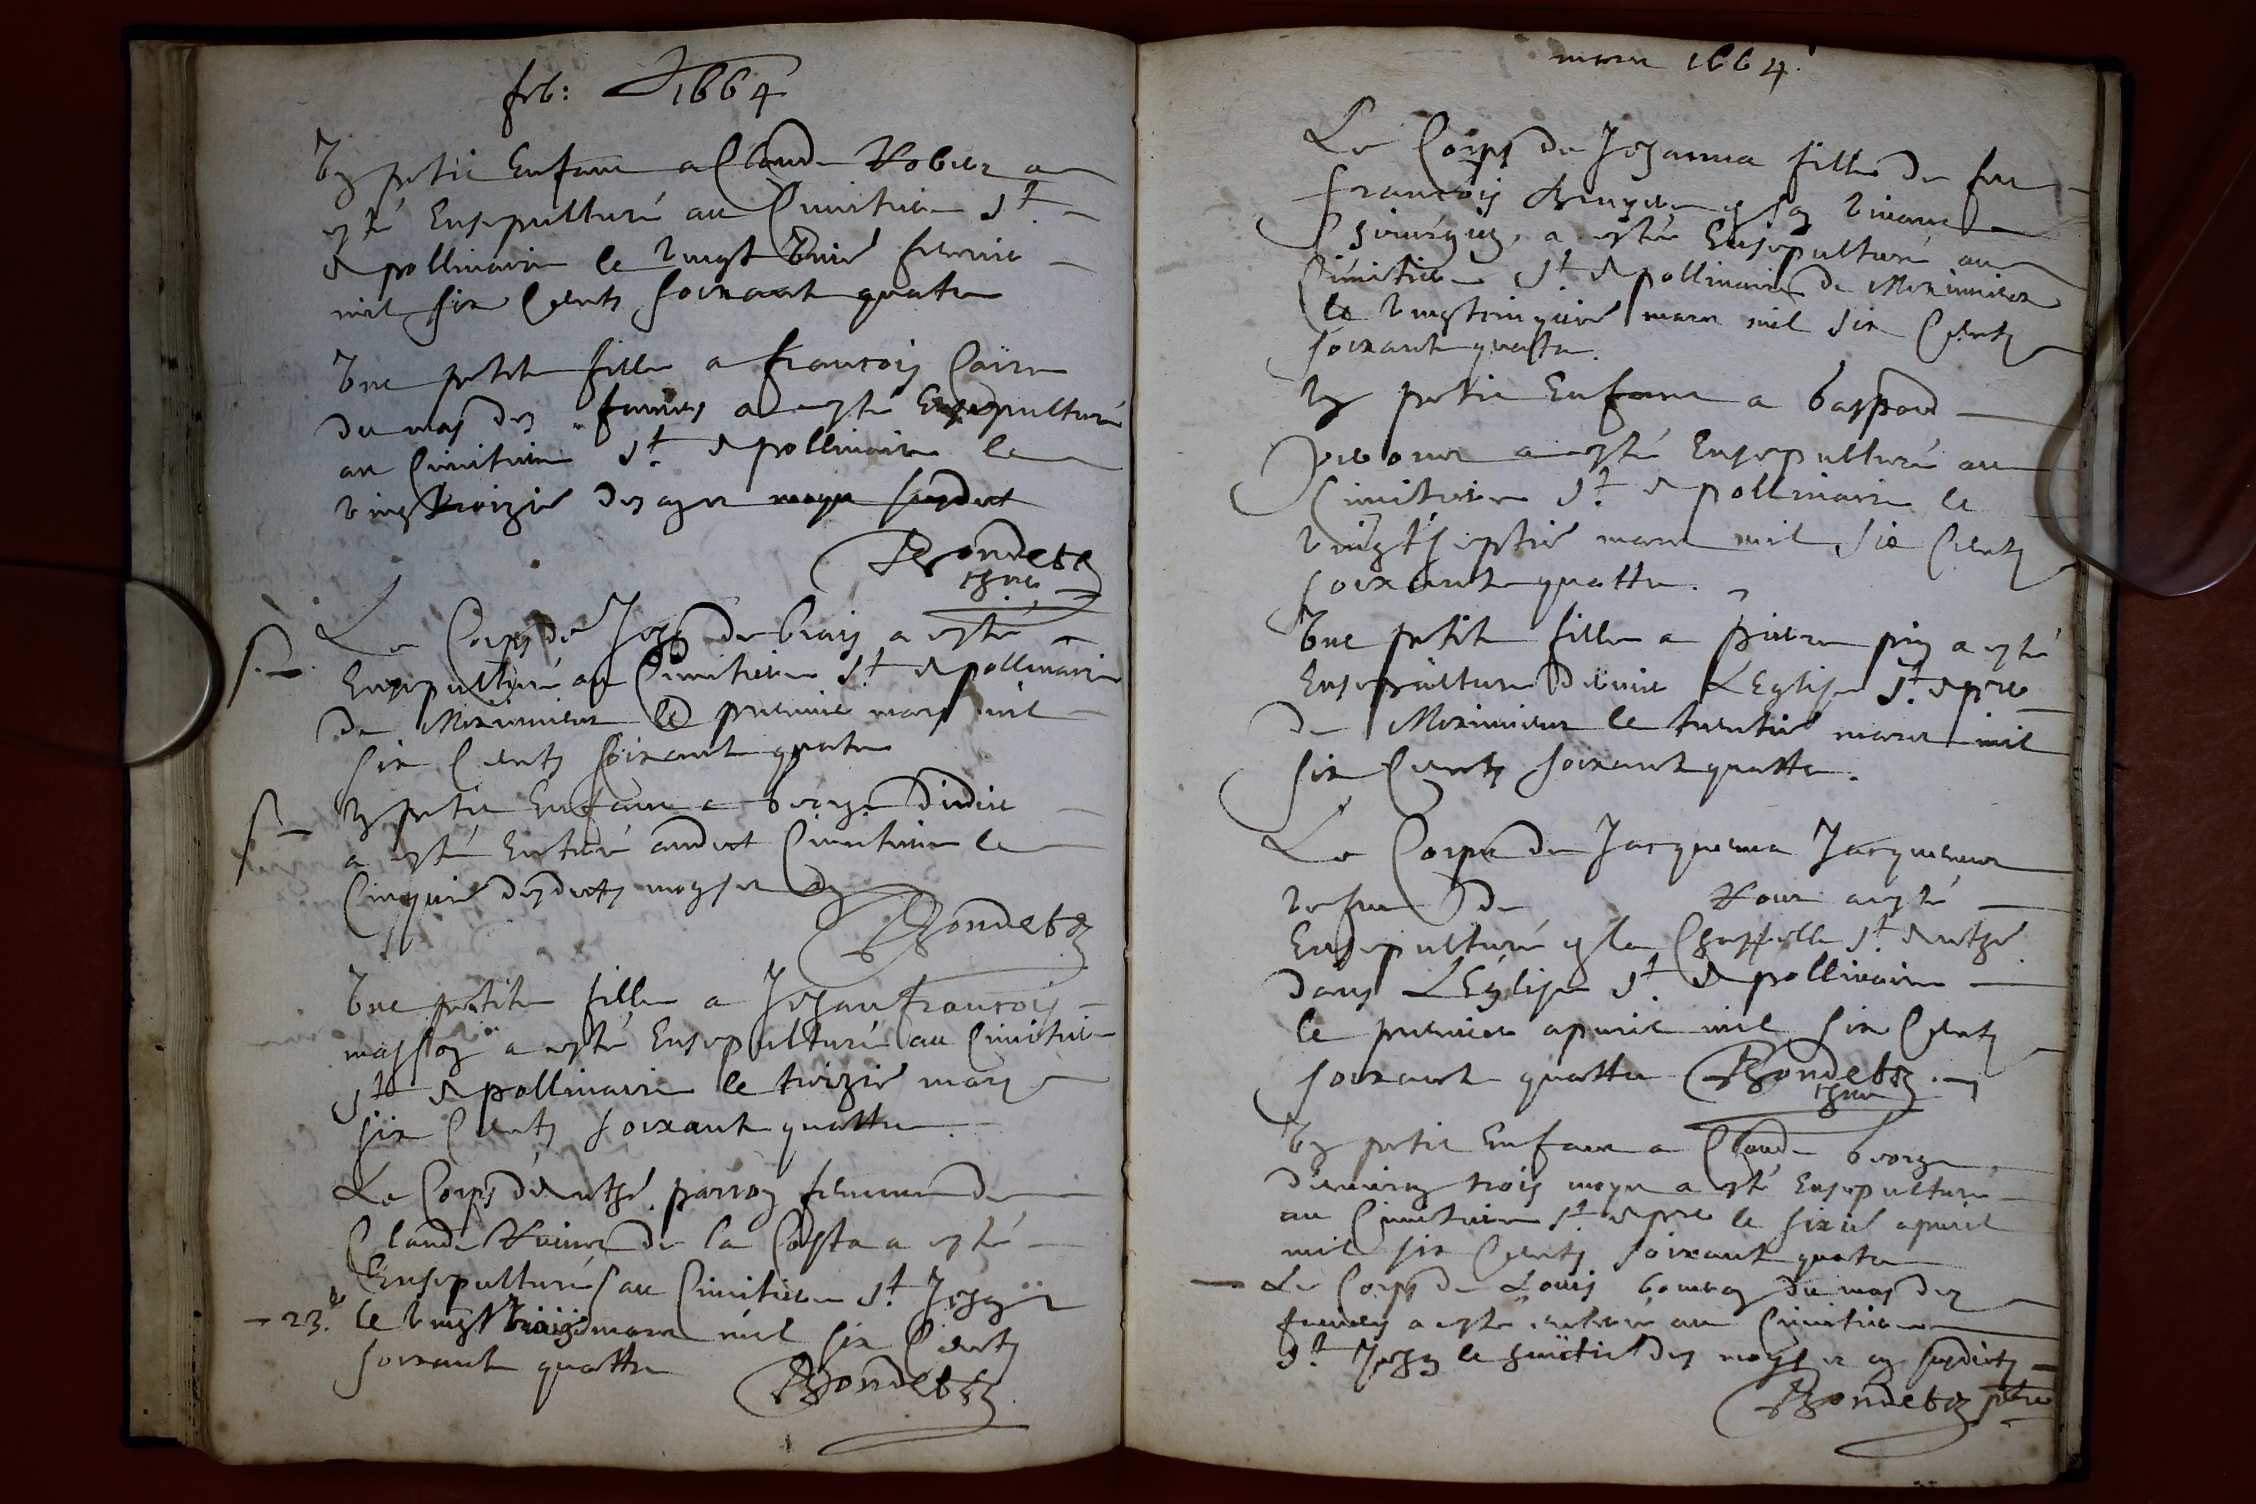 feb: 1664
Ung petit Enfant a Claude Robert a
esté Ensepulturé au Cimitiere St.
Apollinaire le vingt uniè febvrier
mil six Cents soixante quatre
Une petite fille a francois
du mas des fournes a esté Ensepulturé
au Cimitiere St. Apollinaire le
vingttroiziè des an et moys susdict
Rondet
Le Corps de Jehan de a esté
Ensepulturé au Cimitiere St. Apollinaire
de Meximieux le premier mars mil
six Cents soixante quatre
Ung petit Enfant a George Didier
a esté Enterré audict Cimitiere le
Cinquiè desdicts moys et an
Rondet
Une petite fille a Jehan francois
masson a esté Ensepulturé au Cimitiere
St. Apollinaire le treiziè mars
six Cents soixante quattre
Le Corps d'Anthe. parroz femme de
Claude de la Costa a esté
Ensepulturé au Cimitiere St. Jehan
- 23. le vingt troiziè mars mil six Cents
soixante quattre
Rondet
mars 1664.
Le Corps de Jehanna fille de feu
francois en son vivant
Chirurgien, a esté Ensepulturé au
Cimitiere St. Apollinaire de Meximieux
le vingtcinquiè mars mil six Cents
soixante quatre.
Ung petit Enfant a Gaspard
a esté Ensepulturé au
Cimitiere St. Apollinaire le
vingtseptiè mars mil six Cents
soixante quattre.
Une petite fille a pierre pin a esté
Ensepulture devant L'Eglise St. Apre
de Meximieux le trentiè mars mil
six Cents soixante quattre.
Le Corps de Jacquema Jacquemet
vefve de Roux a esté
Ensepulturé en la Chappelle St. Anthe
dans L'Eglise St. Apollinaire
le premier apvril mil six Cents
soixante quattre Rondet
Ung petit Enfant a Claude George
d'environ trois moys a esté Ensepulturé
au Cimitiere St. Apre le sixiè apvril
mil six Cents soixante quatre
Le Corps de Louis du mas des
fournes a esté enterré au Cimitiere
St. Jehan le huictiè des moys et an susdicts
Rondet ptre